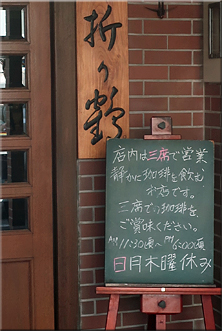 折り鶴
店内は三席で営業
静かに珈琲を飲む
お店です。
三席での珈琲を
ご賞味ください。
AM11:30頃〜PM6:00頃
日月木曜休み